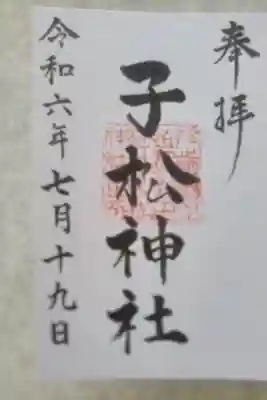 奉拝
子松神社
令和六年七月十九日